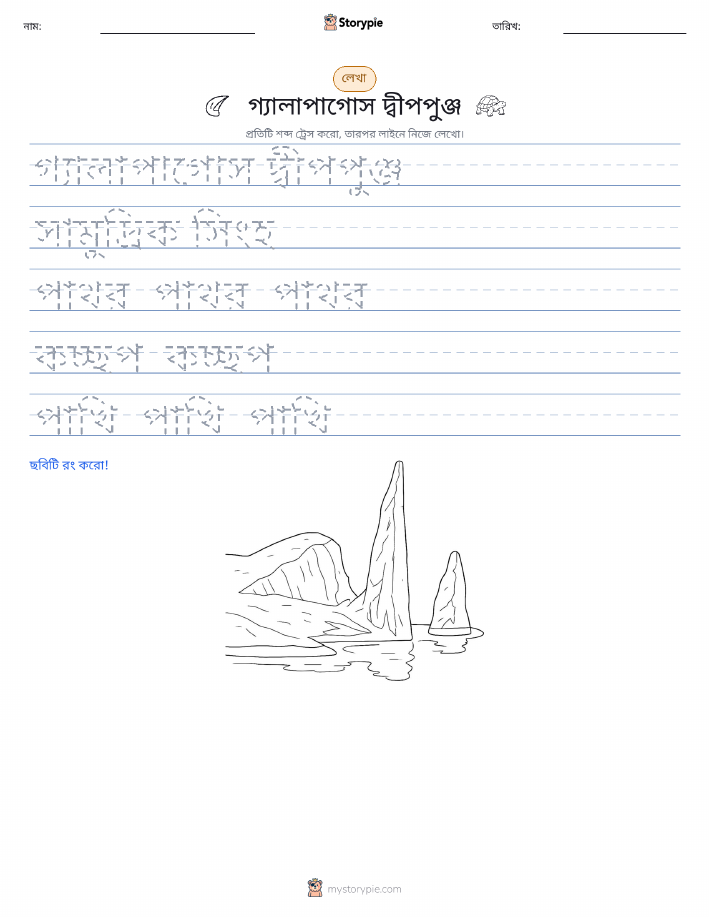 নাম:
Storypie
তারিখ:
লেখা
গ্যালাপাগোস দ্বীপপুঞ্জ
প্রতিটি শব্দ ট্রেস করো, তারপর লাইনে নিজে লেখো।
গ্যালাপাগোস দ্বীপপুঞ্জ
সামুদ্রিক সিংহ
পাথর পাথর পাথর
কচ্ছপ কচ্ছপ
পাখি পাখি পাখি
ছবিটি রং করো!
mystorypie.com